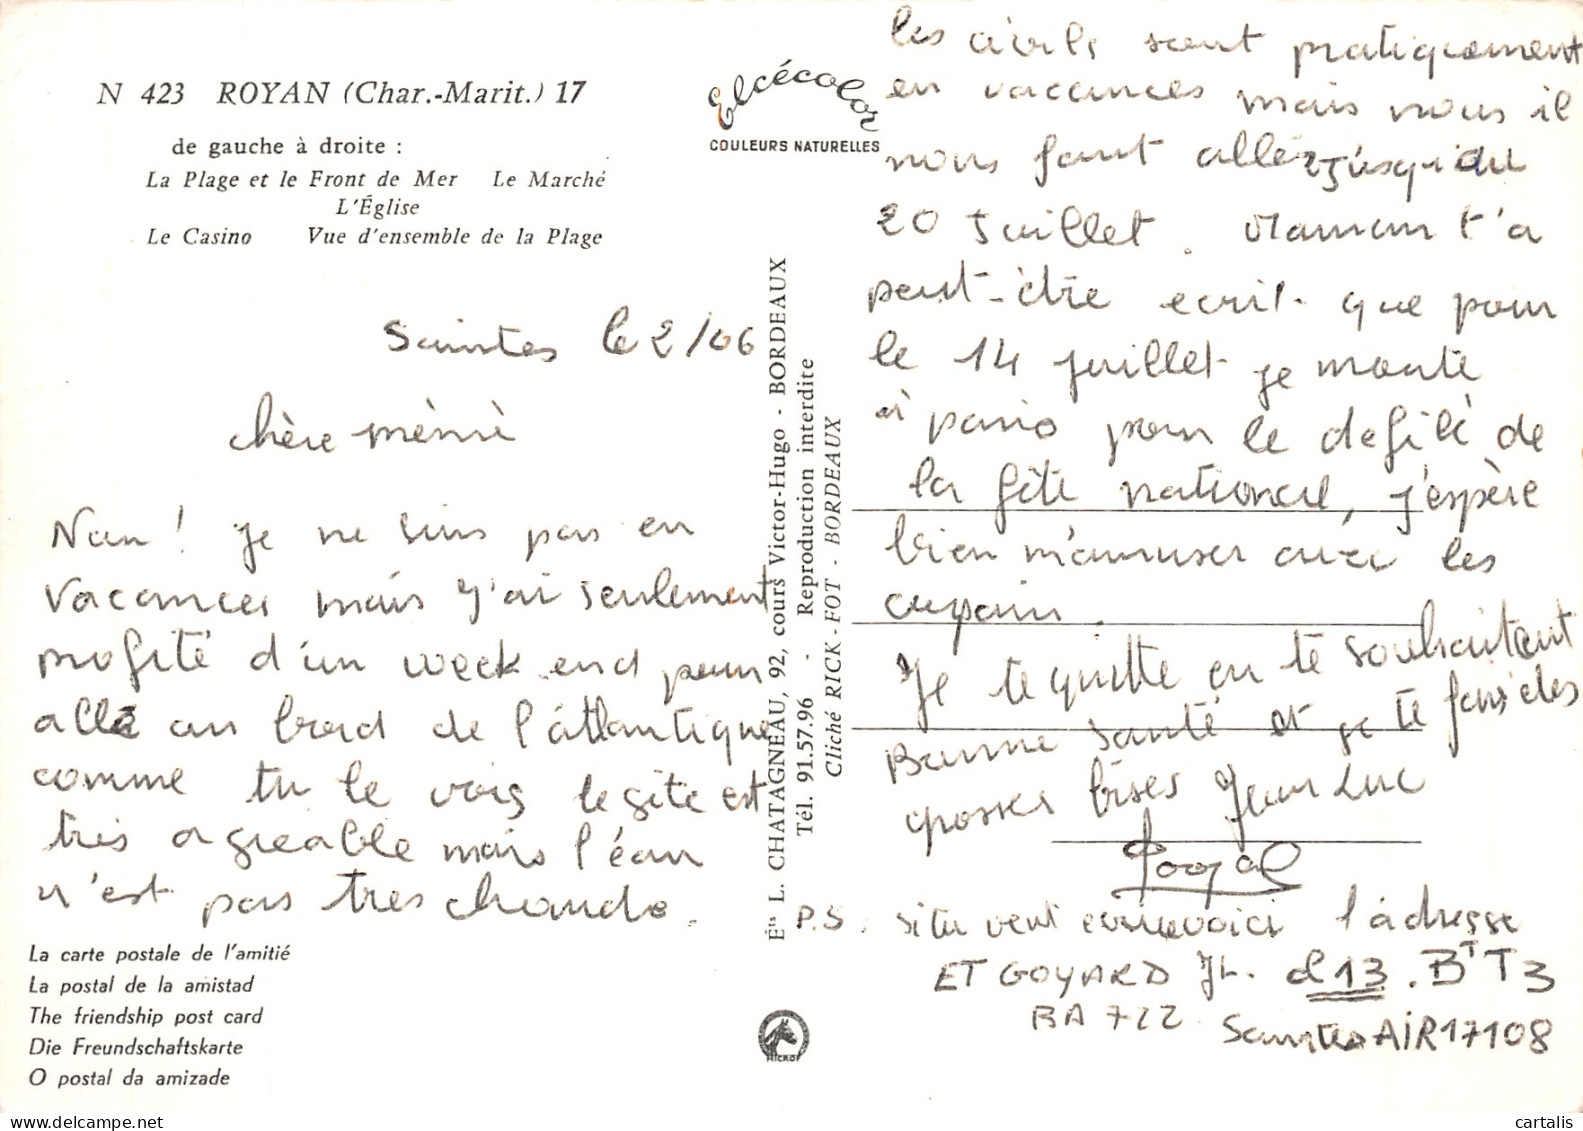 N 423 ROYAN (Char.-Marit.) 17
de gauche à droite :
La Plage et le Front de Mer Le Marché
L'Église
Le Casino Vue d'ensemble de la Plage
Elcécolor
COULEURS NATURELLES
Saintes le 2/06
chère mémé
Nan ! je ne suis pas en
vacances mais j'ai seulement
profité d'un week end pour
allé au bord de l'atlantique
comme tu le vois le site est
très agréable mais l'éau
n'est pas tres chaude.
La carte postale de l'amitié
La postal de la amistad
The friendship post card
Die Freundschaftskarte
O postal da amizade
Éts L. CHATAGNEAU, 92, cours Victor-Hugo - BORDEAUX
Tél. 91.57.96 - Reproduction interdite
Cliché RICK-FOT - BORDEAUX
les civils sont pratiquement
en vacances mais nous il
nous faut aller jusqu'au
20 Juillet. Maman t'a
peut-être ecrit que pour
le 14 juillet je monte
à paris pour le defilé de
la fête national, j'espère
bien m'amuser avec les
copain.
Je te quitte en te souhaitant
Bonne santé et je te fais des
grosses bises Jean Luc
P.S. si tu veut ecrire voici l'adresse
ET GOYARD JL. d 13. BT T3
BA 722 Saintes AIR 17108
MICROF
cartalis
www.delcampe.net